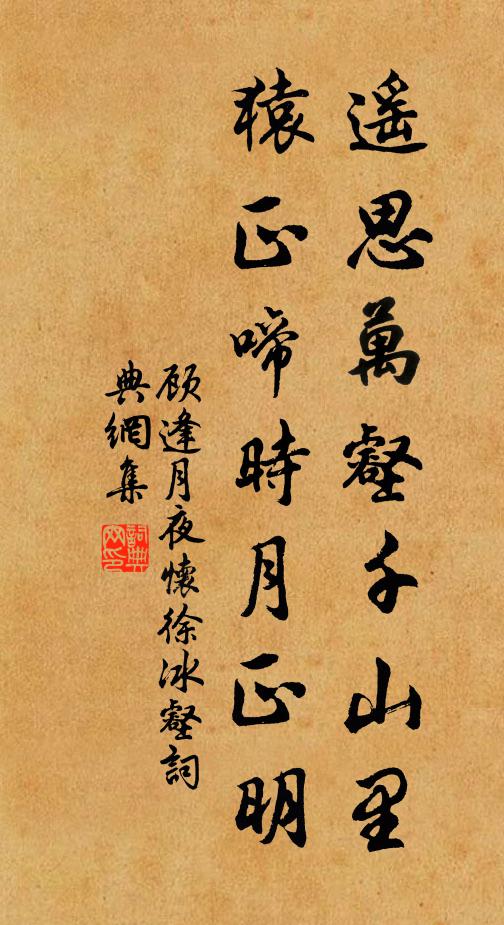 遥思萬壑千山里
猿正啼時月正明
顾逢月夜懷徐冰壑詞
典網集
詞典网印